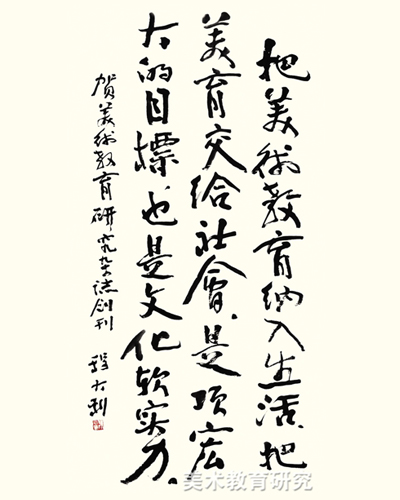 把美術教育纳入生活,把
美育交给社會,是项宏
大的目標,也是文化软实力.
贺美術教育研究杂志创刊
殷大利
美术教育研究